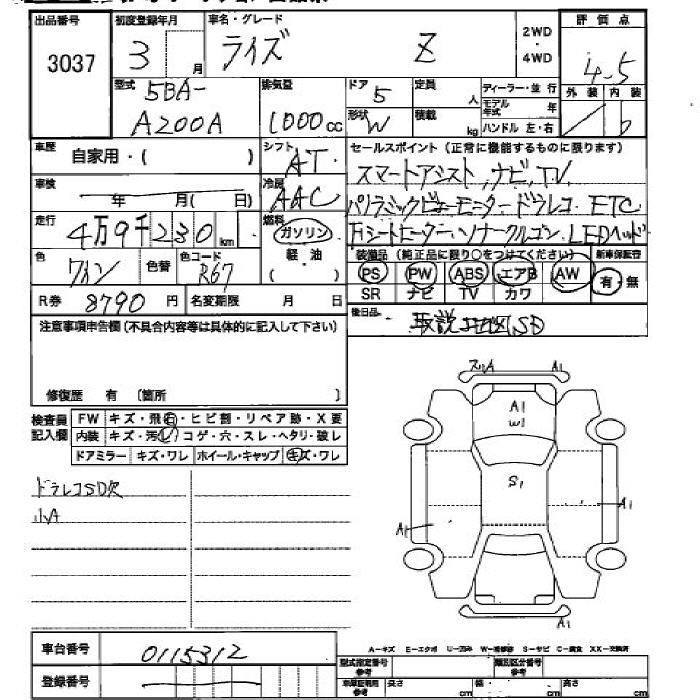 出品番号 初度登録年月 車名・グレード 2WD・4WD 評価点
3037 3 月 ライズ Z 4.5
型式 5BA- 排気量 ドア 5 定員 人 ディーラー・並行 外装 内装
A200A 1000cc 形状 W 積載 kg モデル年式 年 ハンドル 左・右 b
車歴 自家用・( ) シフト AT セールスポイント (正常に機能するものに限ります)
車検 年 月( 日) 冷房 AAC スマートアシスト,ナビ,TV
走行 4万9千230km 燃料 ガソリン パノラミックビューモニター ドラレコ ETC
軽油 ( ) シートヒーター ソナー クルコン LEDヘッド
色 ワイン 色替 色コード R67 装備品 (純正品に限り○をつけてください) 新車保証書
PS PW ABS エアB AW 有・無
R券 8790円 名変期限 月 日 SR ナビ TV カワ
注意事項申告欄(不具合内容等は具体的に記入して下さい) 後日品 取説 SD
修復歴 有 〔箇所 〕
検査員記入欄 FW キズ・飛石・ヒビ割・リペア跡・X要
内装 キズ・汚レ・コゲ・穴・スレ・ヘタリ・破レ
ドアミラー キズ・ワレ ホイール・キャップ キズ・ワレ
ドラレコSD欠
小A
スリA A1
A1
W1
S1
A1
A1
A1
車台番号 0115312
登録番号
A-キズ E-エクボ U-凹み W-補修跡 S-サビ C-腐食 XX-交換済
型式指定番号 参考 類別区分番号 参考
車庫証明用 参考 長さ cm 幅 cm 高さ cm